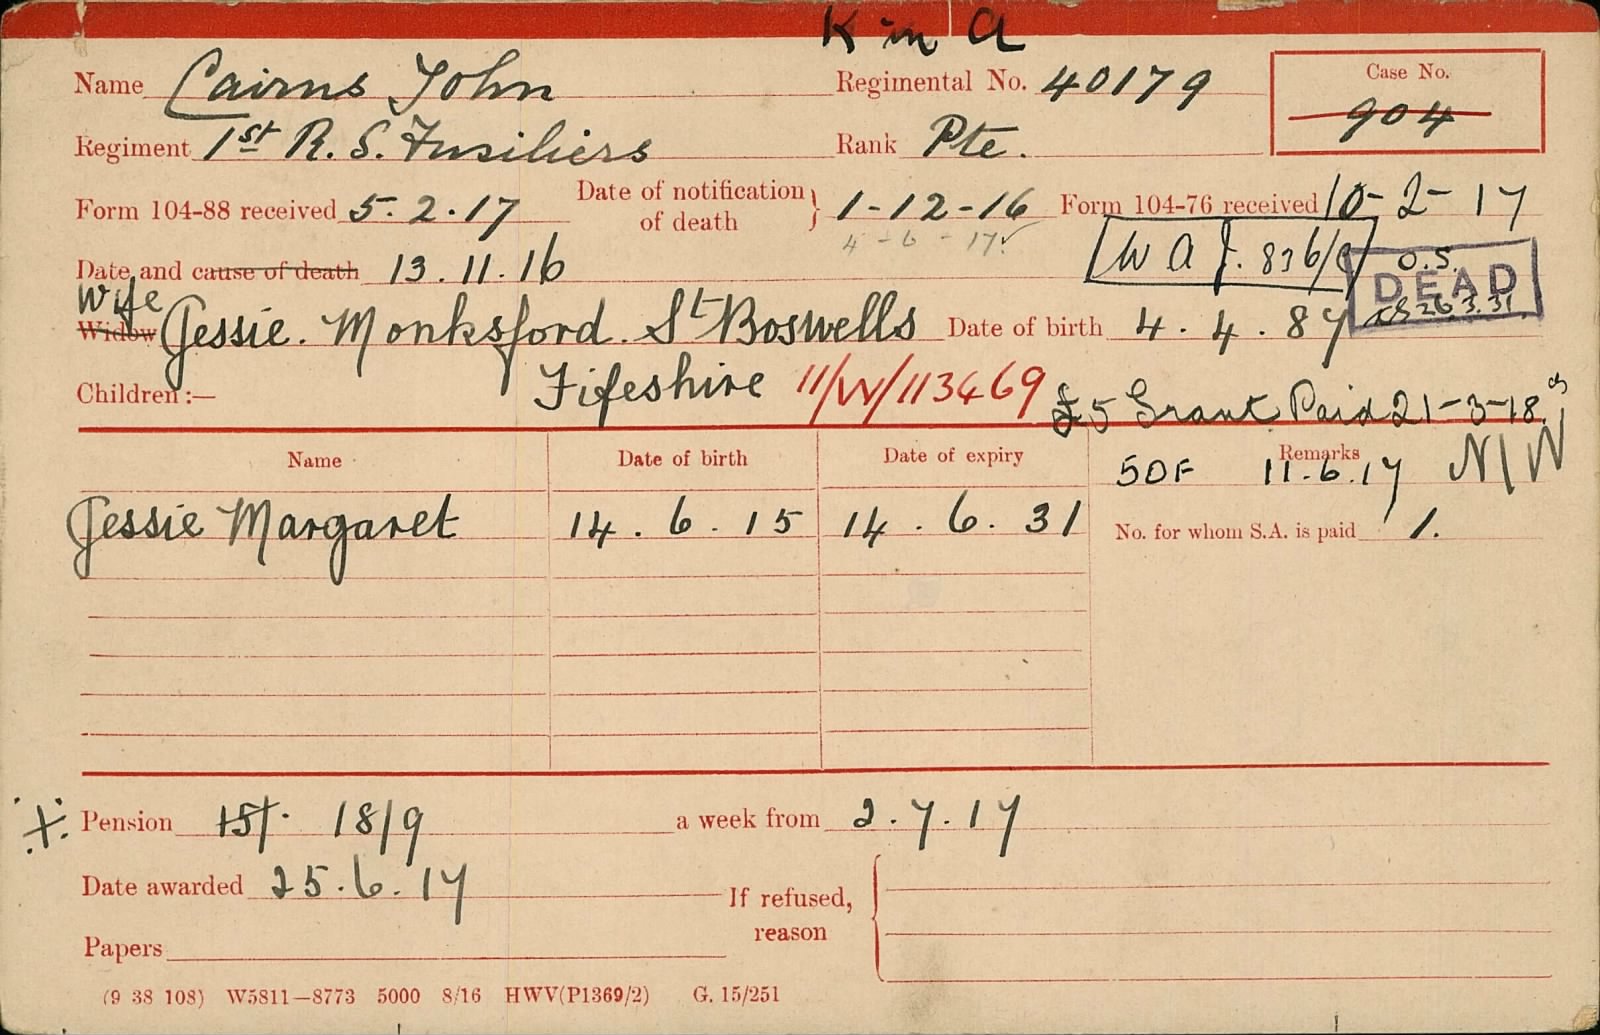 K in A
Name Cairns John Regimental No. 40179 Case No. 904
Regiment 1st R. S. Fusiliers Rank Pte.
Form 104-88 received 5.2.17 Date of notification of death } 1-12-16 Form 104-76 received 10-2-17
4-6-17
Date and cause of death 13.11.16 W A J. 836/9 O.S.
DEAD
26.3.31.
Wife
Widow Jessie. Monksford. St Boswells Date of birth 4.4.87
Children:— Fifeshire 11/W/113469 £5 Grant Paid 21-3-18
Name Date of birth Date of expiry Remarks
SOF 11.6.17 N/W
Jessie Margaret 14.6.15 14.6.31 No. for whom S.A. is paid 1.
Pension 15/- 18/9 a week from 2.7.17
Date awarded 25.6.17 If refused, reason
Papers
(9 38 108) W5811—8773 5000 8/16 HWV(P1369/2) G. 15/251